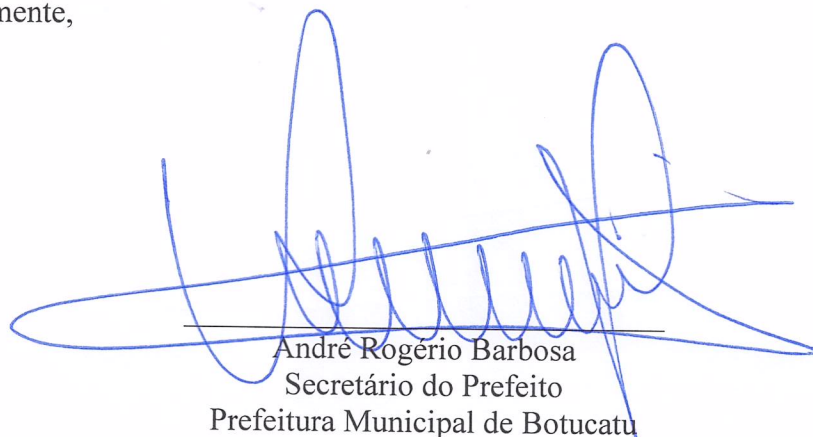 mente,
André Rogério Barbosa
Secretário do Prefeito
Prefeitura Municipal de Botucatu